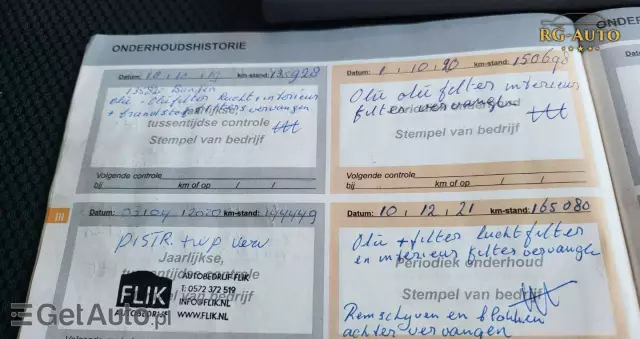 RG-AUTO
ONDERHOUDSHISTORIE
Datum: km-stand:
olie - oliefilter lucht + interieur
+ brandstof filters vervangen
Jaarlijkse,
tussentijdse controle
Stempel van bedrijf
Volgende controle
bij km of op / /
Datum: 1, 10, 20 km-stand: 150698
Olie olie filter interieur
filter vervangen
Periodiek onderhoud
Stempel van bedrijf
Volgende controle
bij km of op / /
III
Datum: 03/04/2020 km-stand: 144449
DISTR. + wp verv
Jaarlijkse,
tussentijdse controle
Stempel van bedrijf
FLIK
AUTOBEDRIJF
AUTOBEDRIJF FLIK
T: 0572 372 519
INFO@FLIK.NL
WWW.FLIK.NL
Datum: 10, 12, 21 km-stand: 165080
Olie + filter luchtfilter
en interieur filter vervangen
Periodiek onderhoud
Stempel van bedrijf
Remschyven en blokken
achter vervangen
GetAuto.pl